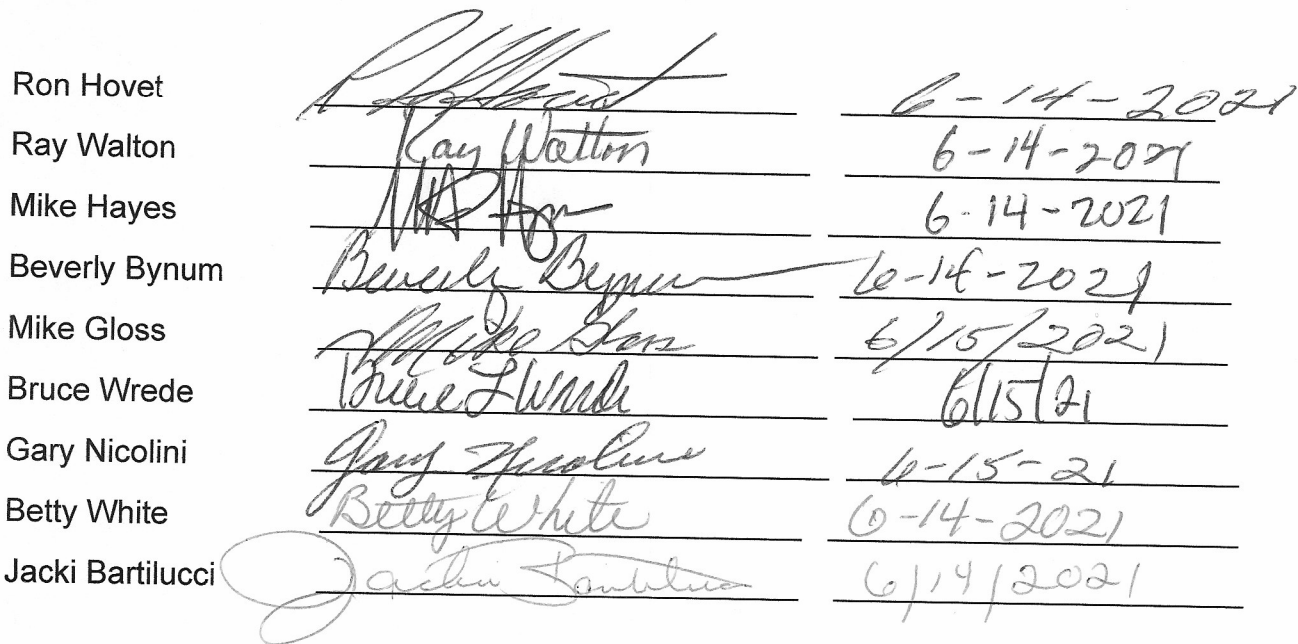 Ron Hovet R Hovet 6-14-2021
Ray Walton Ray Walton 6-14-2021
Mike Hayes 6-14-2021
Beverly Bynum Beverly Bynum 6-14-2021
Mike Gloss Mike Gloss 6/15/2021
Bruce Wrede Bruce L Wrede 6/15/21
Gary Nicolini Gary Nicolini 6-15-21
Betty White Betty White 6-14-2021
Jacki Bartilucci Jacki Bartilucci 6/14/2021